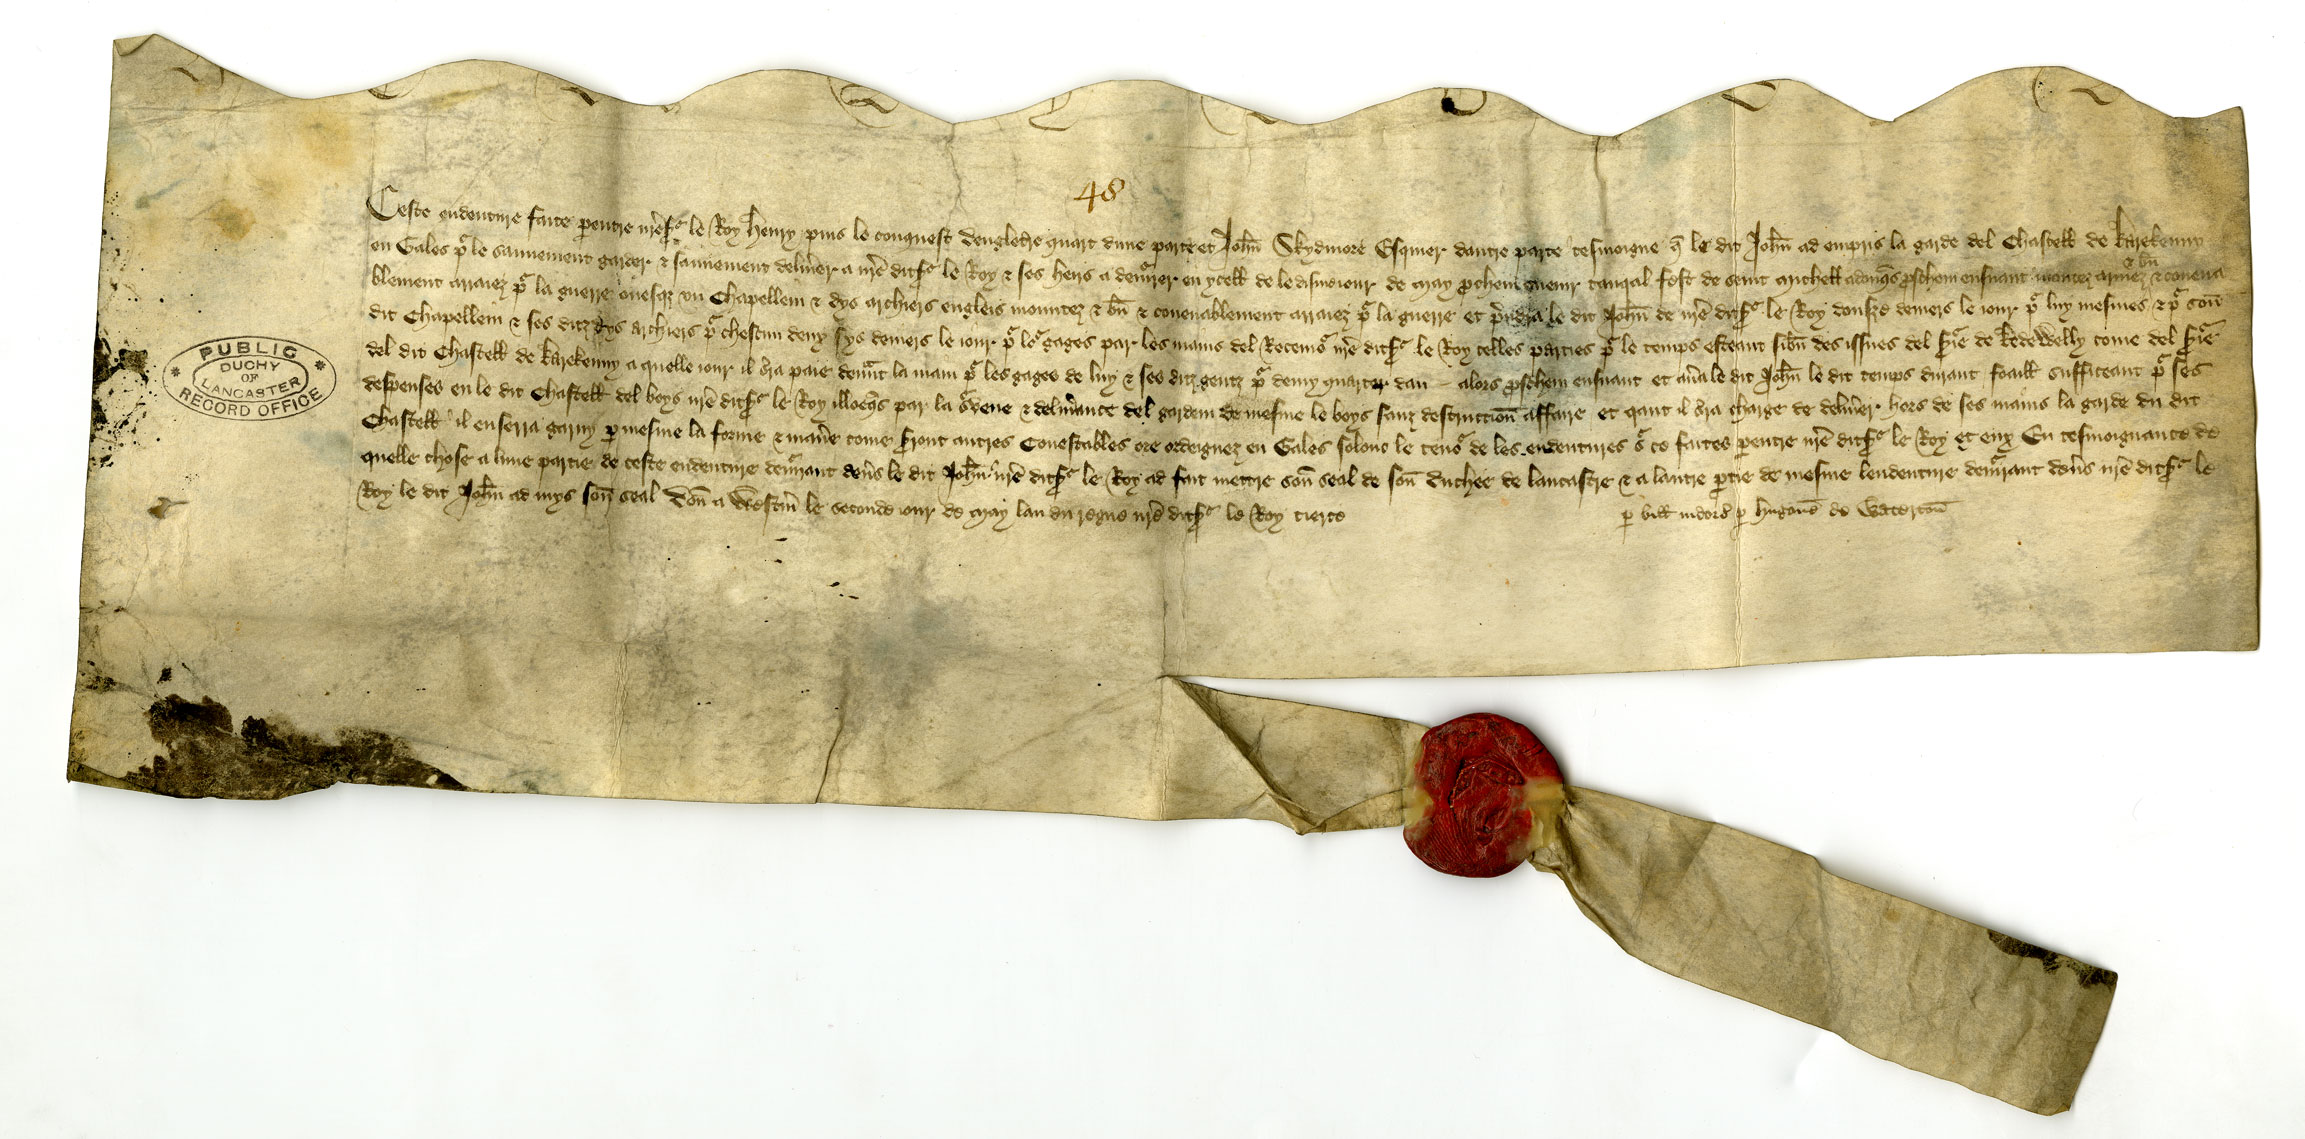 48
Ceste endenture faite pentre nre sr le Roy Henry puis le conquest dengleterre quart dune parte et Johan Skydmore Esquier dautre parte tesmoigne qe le dit Johan ad empris la garde del Chastell de Karekenny
en Gales pr le sauvement garder & sauvement deliverer a nre dit sr le Roy & ses heirs a demurer en ycell de le disme iour de May prochein avenir tanqal fest de seint Michell adonqes preschein ensuant mountez armez & bn & covena
blement arraiez pr la guerre ovesqz un Chapellein & dys archiers engleis mountez & bn & covenablement arraiez pr la guerre et prendra le dit Johan de nre dit sr le Roy douszd deniers le iour pr luy mesmes & pr son
dit Chapellein & ses ditz dys archiers pr chescun deux sys deniers le iour pr lor gages par les mains del Receivor nre dit sr le Roy celles parties pr le temps esteant sibn des issues del srie de Kedewelly come del srie
del dit Chastell de Karekenny a quelle iour il sra paie devant la main pr les gages de luy & ses ditz gentz pr demy quarter dan alors preschein ensuant et avera le dit Johan le dit temps durant foaill sufficeant pr ses
despenses en le dit Chastell del boys nre dit sr le Roy illoeqes par la survene & deliverance del gardein de mesme le boys sanz destruction affaire et qant il sra charge de deliverer hors de ses mains la garde du dit
Chastell il en serra garny p mesme la forme & manere come sront autres Conestables ore ordeignez en Gales solonc le tenor de les endentures sr ce faites pentre nre dit sr le Roy et eux En tesmoignance de
quelle chose a lune partie de ceste endenture demurant devers le dit Johan nre dit sr le Roy ad fait mettre son seal de son Duchee de Lancastre & a lautre partie de mesme lendenture demurant devers nre dit sr le
Roy le dit Johan ad mys son seal Don a Westmr le seconde iour de May lan du regne nre dit sr le Roy tierce
p bill endors p Hugone de Waterton
PUBLIC
DUCHY
OF
LANCASTER
RECORD OFFICE